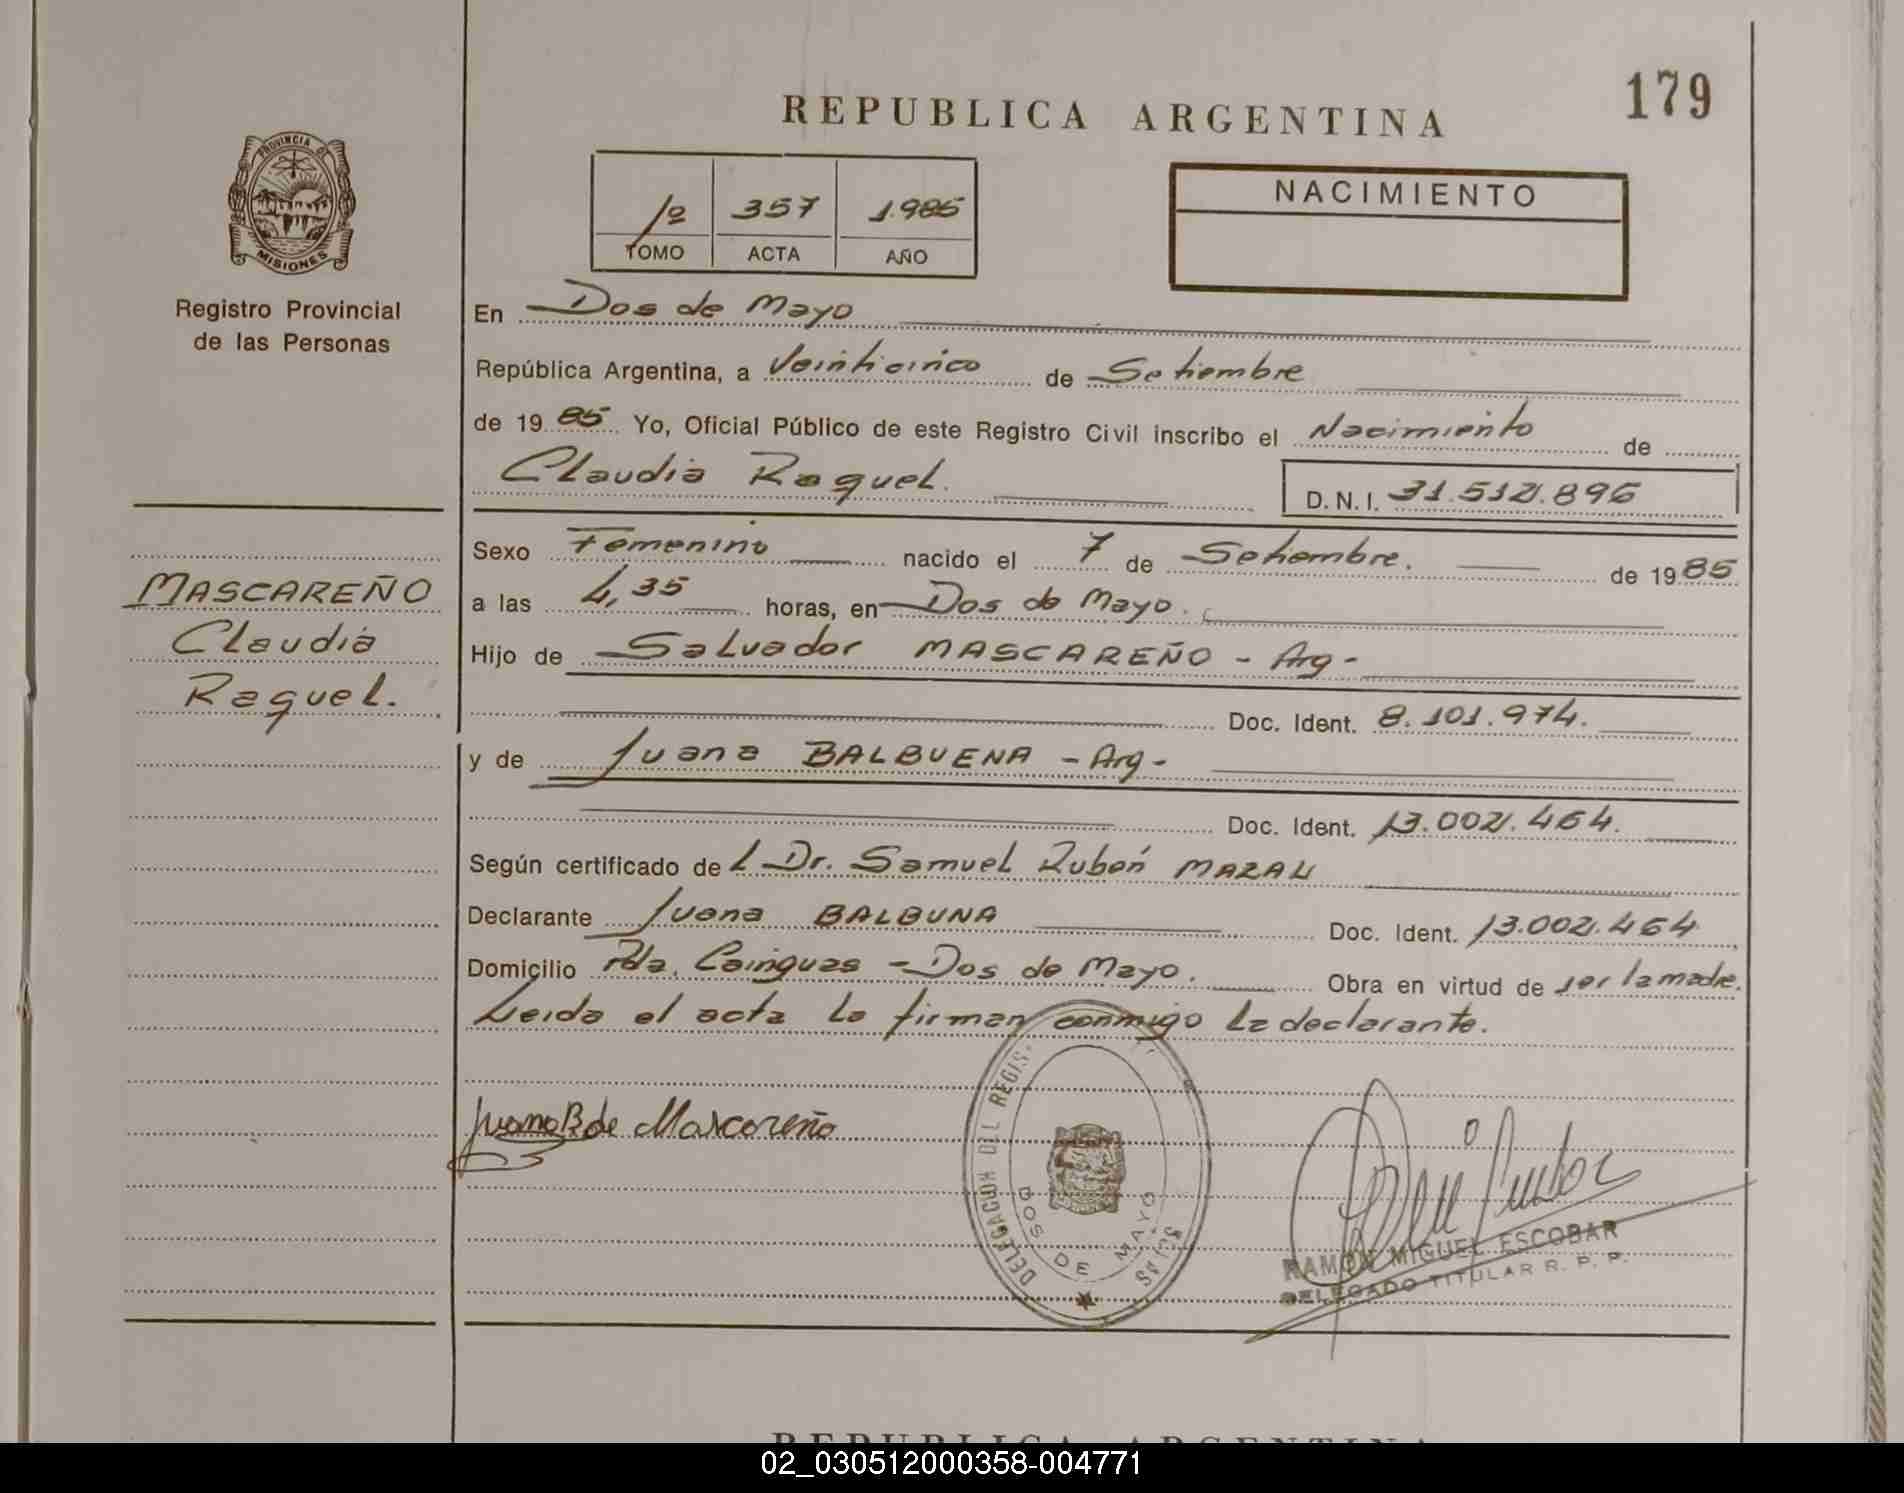 179
REPUBLICA ARGENTINA
PROVINCIA DE
MISIONES
Registro Provincial
de las Personas
1º 357 1.985
TOMO ACTA AÑO
NACIMIENTO
En Dos de Mayo
República Argentina, a Veinticinco de Setiembre
de 1985 Yo, Oficial Público de este Registro Civil inscribo el Nacimiento de
Claudia Raquel. D.N.I. 31.512.896
Sexo Femenino nacido el 7 de Setiembre. de 1985
MASCAREÑO
Claudia
Raquel.
a las 4,35 horas, en Dos de Mayo.
Hijo de Salvador MASCAREÑO - Arg -
Doc. Ident. 8.101.974.
y de Juana BALBUENA - Arg -
Doc. Ident. 13.002.464.
Según certificado del Dr. Samuel Rubén MAZAL
Declarante Juana BALBUNA Doc. Ident. 13.002.464
Domicilio Pda. Cainguas - Dos de Mayo. Obra en virtud de ser la madre.
Leida el acta la firman conmigo la declarante.
Juana B de Mascareño
DELEGACION DEL REGIS.
DOS DE MAYO
RAMON MIGUEL ESCOBAR
DELEGADO TITULAR R. P. P.
REPUBLICA ARGENTINA
02_030512000358-004771